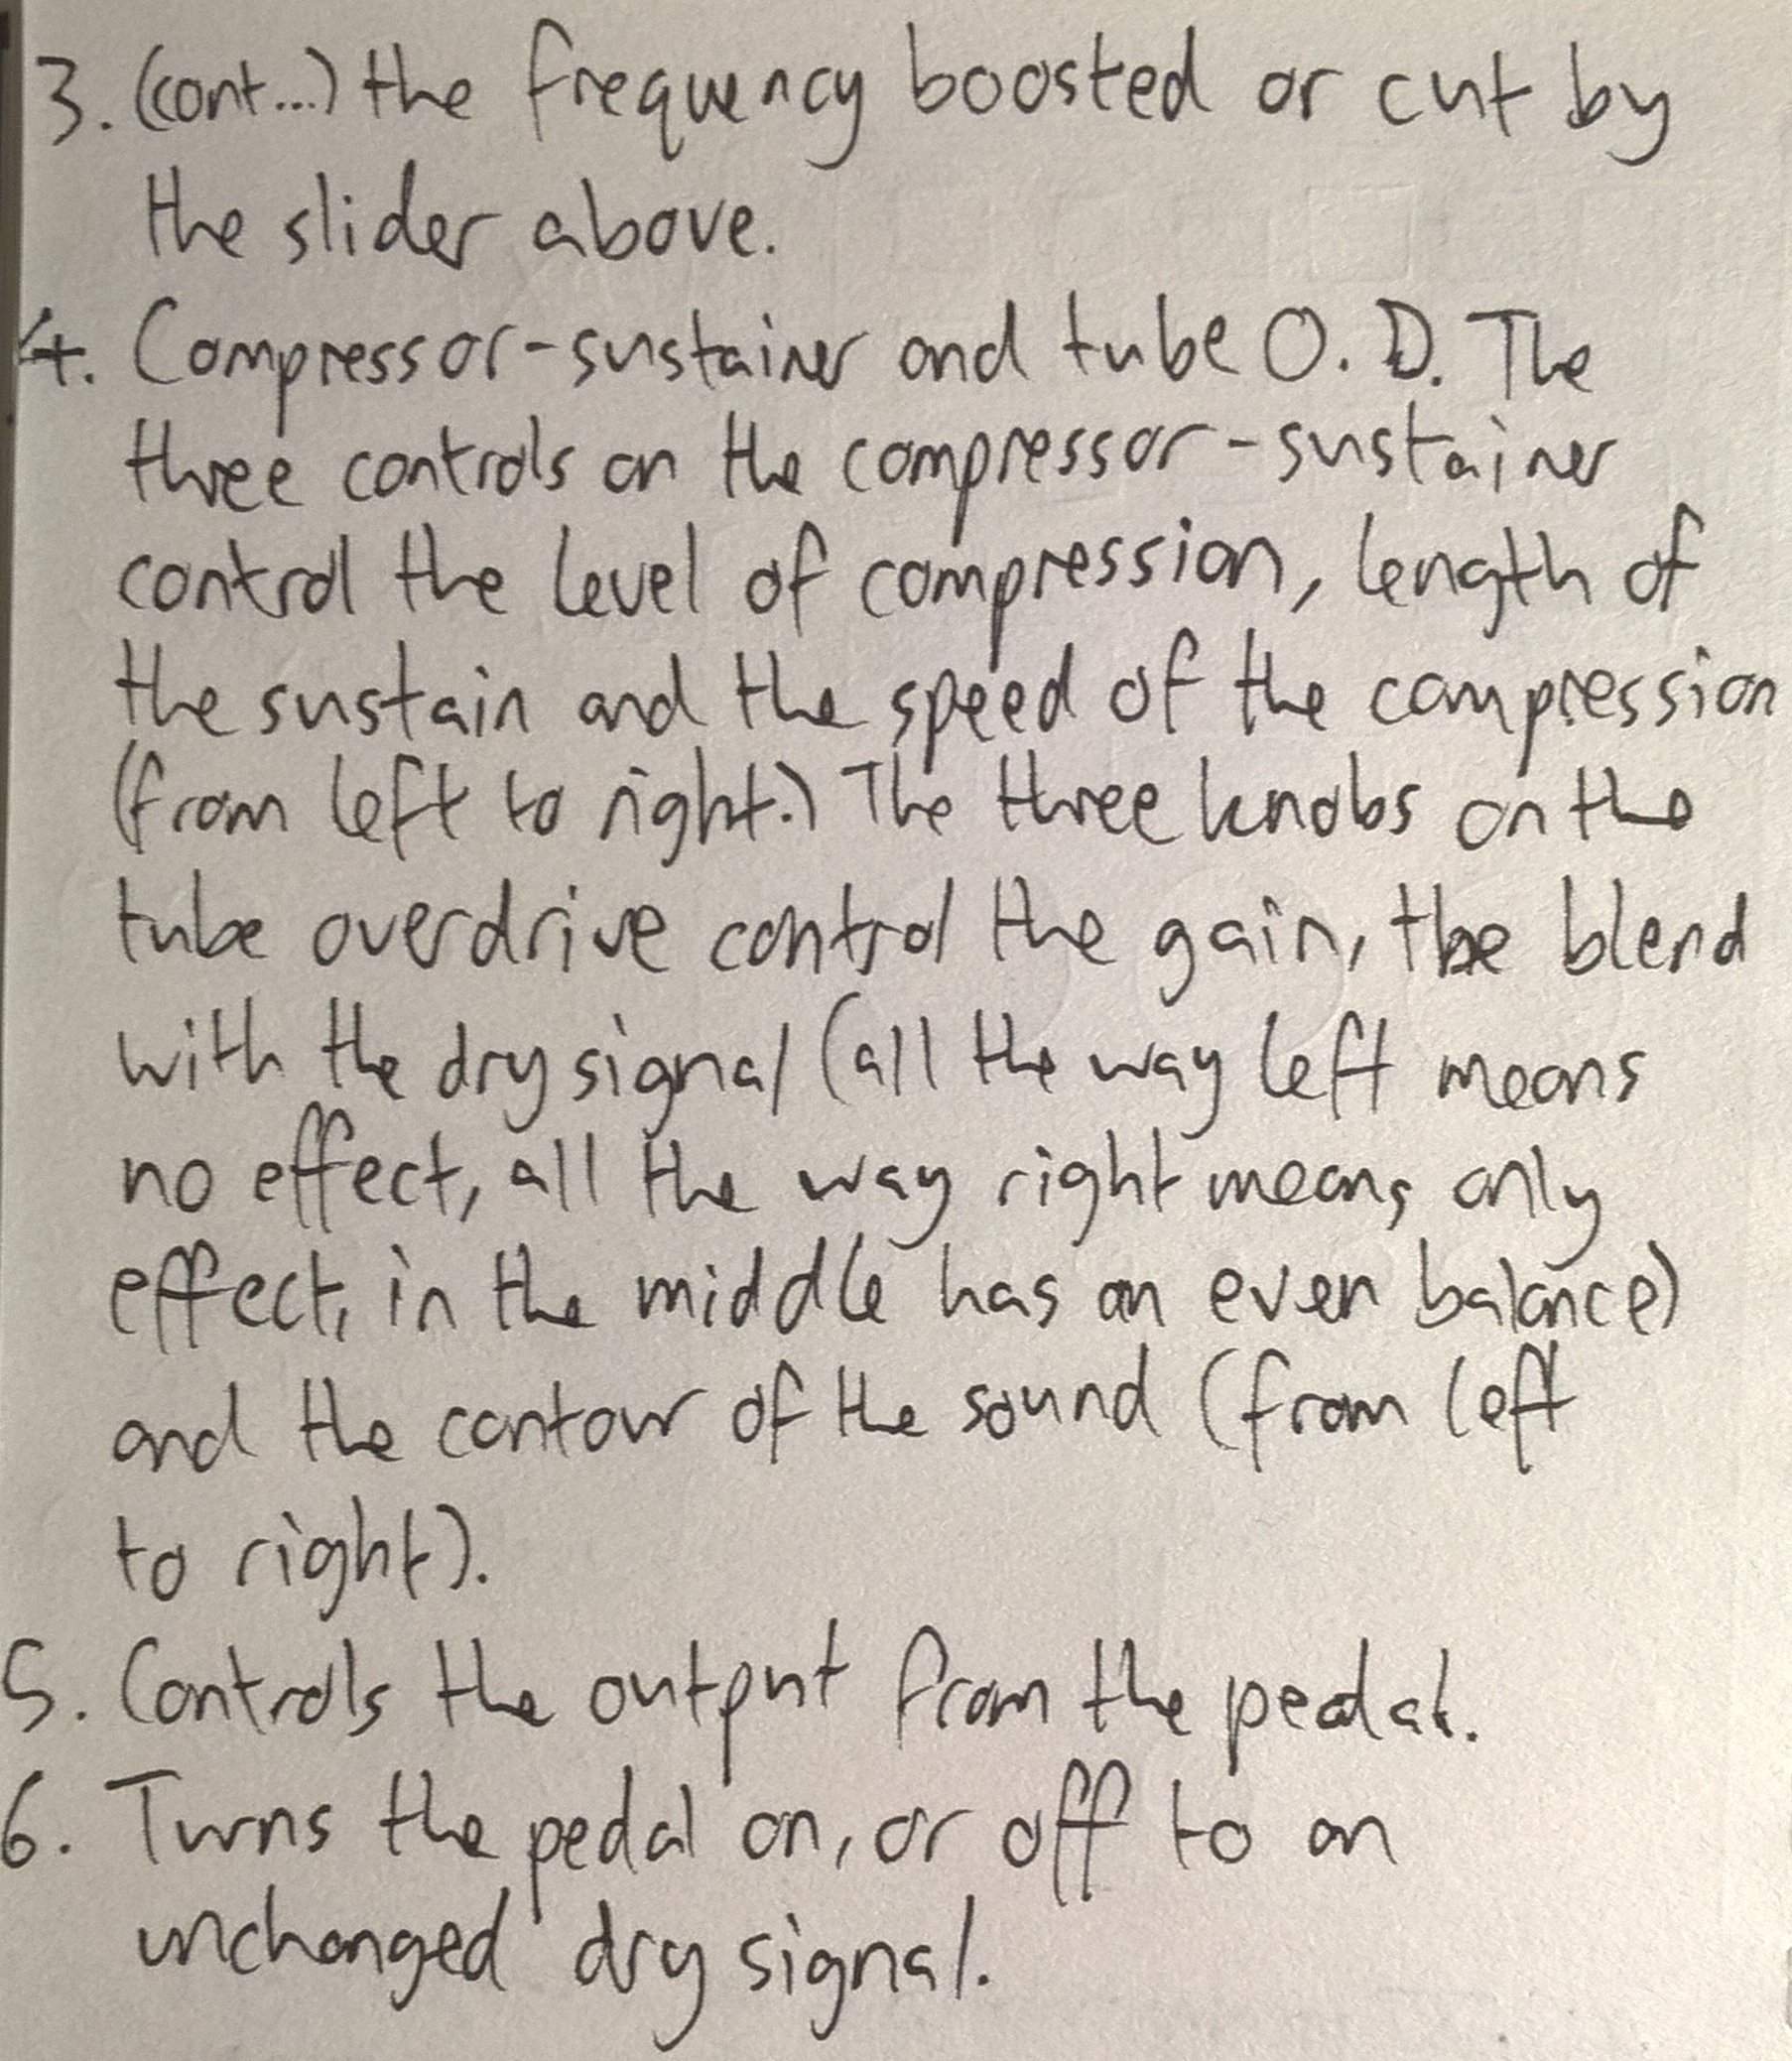 3. (cont...) the frequency boosted or cut by
the slider above.
4. Compressor-sustainer and tube O.D. The
three controls on the compressor-sustainer
control the level of compression, length of
the sustain and the speed of the compression
(from left to right.) The three knobs on the
tube overdrive control the gain, the blend
with the dry signal (all the way left means
no effect, all the way right means only
effect, in the middle has an even balance)
and the contour of the sound (from left
to right).
5. Controls the output from the pedal.
6. Turns the pedal on, or off to an
unchanged dry signal.